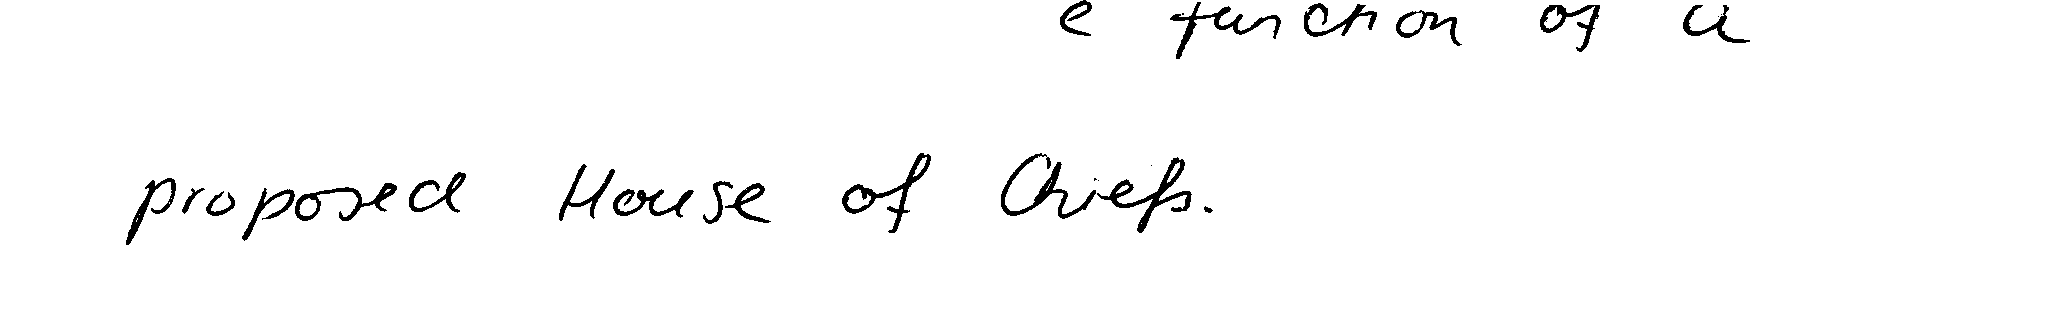 function of a
proposed House of Chiefs.